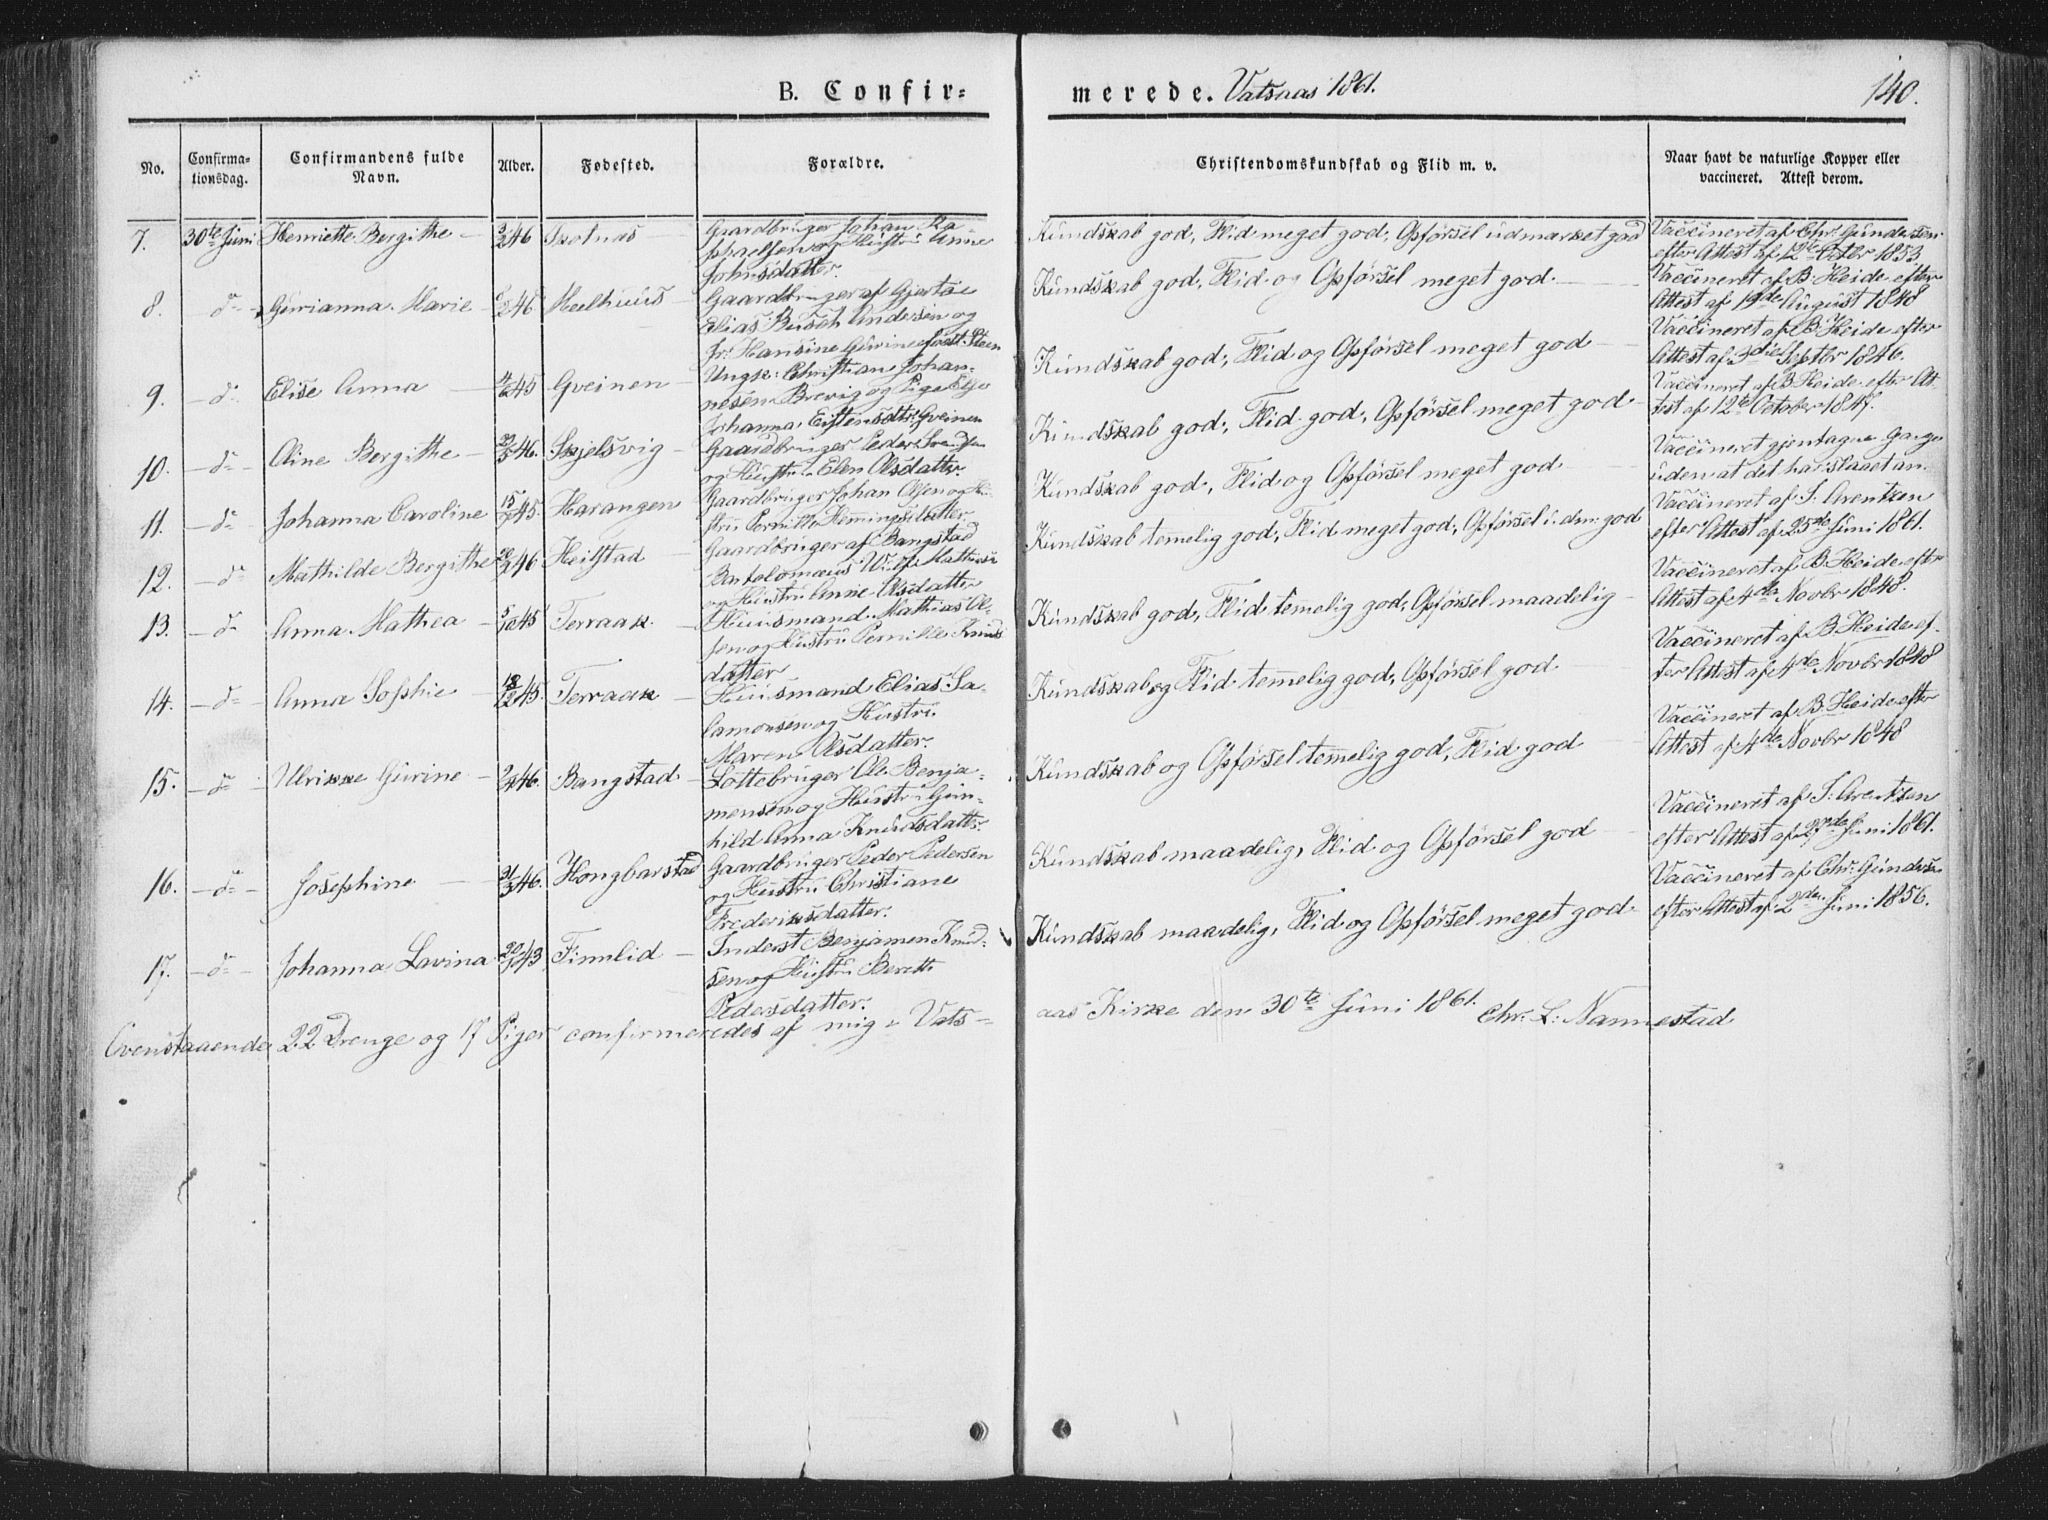 B. Confir-
merede. Vatsaas 1861.
140.
No.
Confirma-
tionsdag.
Confirmandens fulde
Navn.
Alder.
Fødested.
Forældre.
Christendomskundskab og Flid m. v.
Naar havt de naturlige Kopper eller
vaccineret. Attest derom.
7. 30te Juni Henriette Bergithe 46 Skotnas
Gaardbruger Johan Ra-
phaelsen og Hustru Anne
Johnsdatter.
Kundskab god, Flid meget god, Opførsel udmærket god
Vaccineret af Chr. Gundersen
efter Attest af 12te Octbr 1853
8. d= Gurianna Marie 46 Heelhuus
Gaardbruger af Gjertøe
Elias Busch Andersen og
Hansine Gurine Steen
Kundskab god, Flid og Opførsel meget god
Vaccineret af B. Heide efter
Attest af 19de August 1848
9. d= Elise Anna 45 Gveinen
Ungk: Christian Johan-
nesen Brevig og Pige Else
Johanna Eistensdtr Gveinen
Kundskab god, Flid og Opførsel meget god
Vaccineret af B. Heide efter
Attest af 3die Septbr 1846.
10. d= Oline Bergithe 46. Skjelsvig
Gaardbruger Peder Svendsen
og Hustru Elen Olsdatter.
Kundskab god, Flid god, Opførsel meget god
Vaccineret af B. Heide efter At-
test af 12te October 1847.
11. d= Johanna Caroline 15/ 45. Harangen
Gaardbruger Johan Olsen og Hu-
stru Pernille Hemmingsdatter
Kundskab god, Flid og Opførsel meget god
Vaccineret gjentagne Gange
uden at det har slaaet an.
12. d= Mathilde Bergithe 46 Heilstad
Gaardbruger af Bangstad
Bartolomæus Mathias
og Hustru Anne Olsdatter
Kundskab temelig god, Flid meget god, Opførsel god
Vaccineret af S. Arentzen
efter Attest af 25de Juni 1861.
13. d= Anna Mathea 5/10 45 Terraak
Huusmand Mathias Ol-
sen og Hustru Pernille Knuds
datter
Kundskab god, Flid temelig god, Opførsel maadelig
Vaccineret af B. Heide efter
Attest af 4de Novbr 1848.
14. d= Anna Sophie 18/12 45. Terraak
Huusmand Elias Sa-
lamonsen og Hustru
Maren Olsdatter.
Kundskab og Flid temelig god, Opførsel god
Vaccineret af B. Heide ef-
ter Attest af 4de Novbr 1848
15. d= Ulrikke Gurine 46. Bangstad
Lottebruger Ole Benja-
mensen og Hustru Gun-
hild Anna Knudsdatter.
Kundskab og Opførsel temelig god, Flid god
Vaccineret af B. Heide efter
Attest af 4de Novbr 1848
16. d= Josephine 31/3 46. Hongbarstad
Gaardbruger Peder Pedersen
og Hustru Christiane
Frederiksdatter.
Kundskab maadelig, Flid og Opførsel god
Vaccineret af S. Arentzen
efter Attest af 27de Juni 1861.
17. d= Johanna Lavina 43 Finnlid
Inderst Benjamen Knud-
sen og Hustru Berette
Pedersdatter.
Kundskab maadelig, Flid og Opførsel meget god
Vaccineret af Chr. Gunderse
efter Attest af 2den Juni 1856.
Ovenstaaende 22 Drenge og 17 Piger confirmeredes af mig i Vats-
aas Kirke den 30te Juni 1861. Chr. L: Nannestad